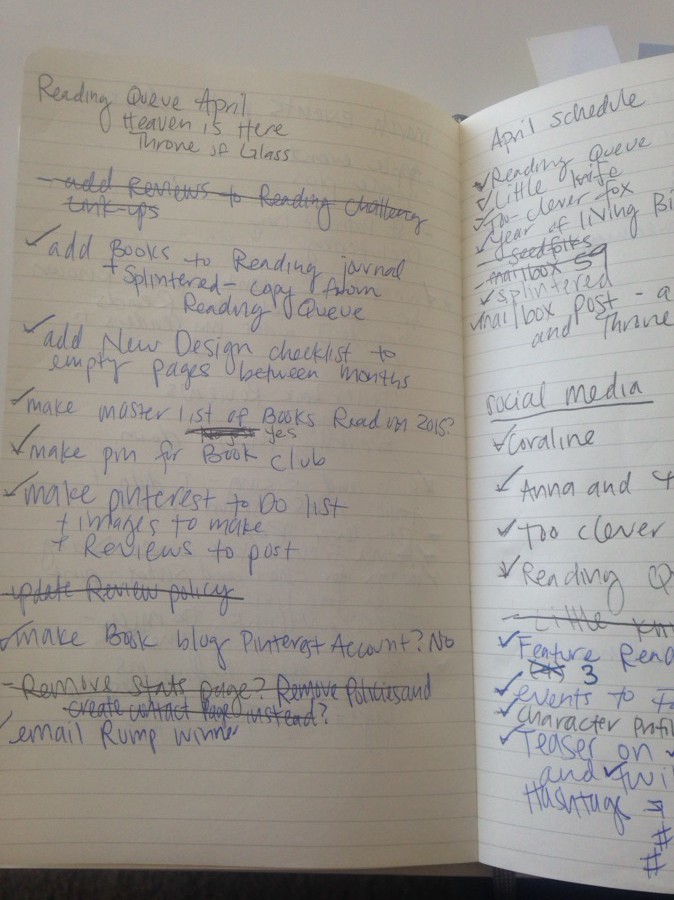 Reading Queue April
Heaven is Here
Throne of Glass
- add Reviews to Reading challenge
Link-ups
✓add Books to Reading journal
+ Splintered - copy from
Reading Queue
✓add New Design checklist to
empty pages between months
✓make master list of Books Read in 2015?
yes
✓make pin for Book club
✓make pinterest to Do list
+ images to make
+ Reviews to post
- update Review policy
✓make Book blog Pinterest Account? No
- Remove Stats page? Remove Policies and
create contact Page instead?
✓email Rump winner
April schedule
✓Reading Queue
✓Little Knife
✓Too-clever fox
✓Year of living Bi
- seedfolks
- mailbox 59
✓Splintered
✓mailbox post - a
and Throne
social media
✓Coraline
✓Anna and
✓Too clever
✓Reading Q
- Little Kni
✓Feature Read
3
✓events to
✓character Profil
✓Teaser on
and Twi
Hashtags
#
#